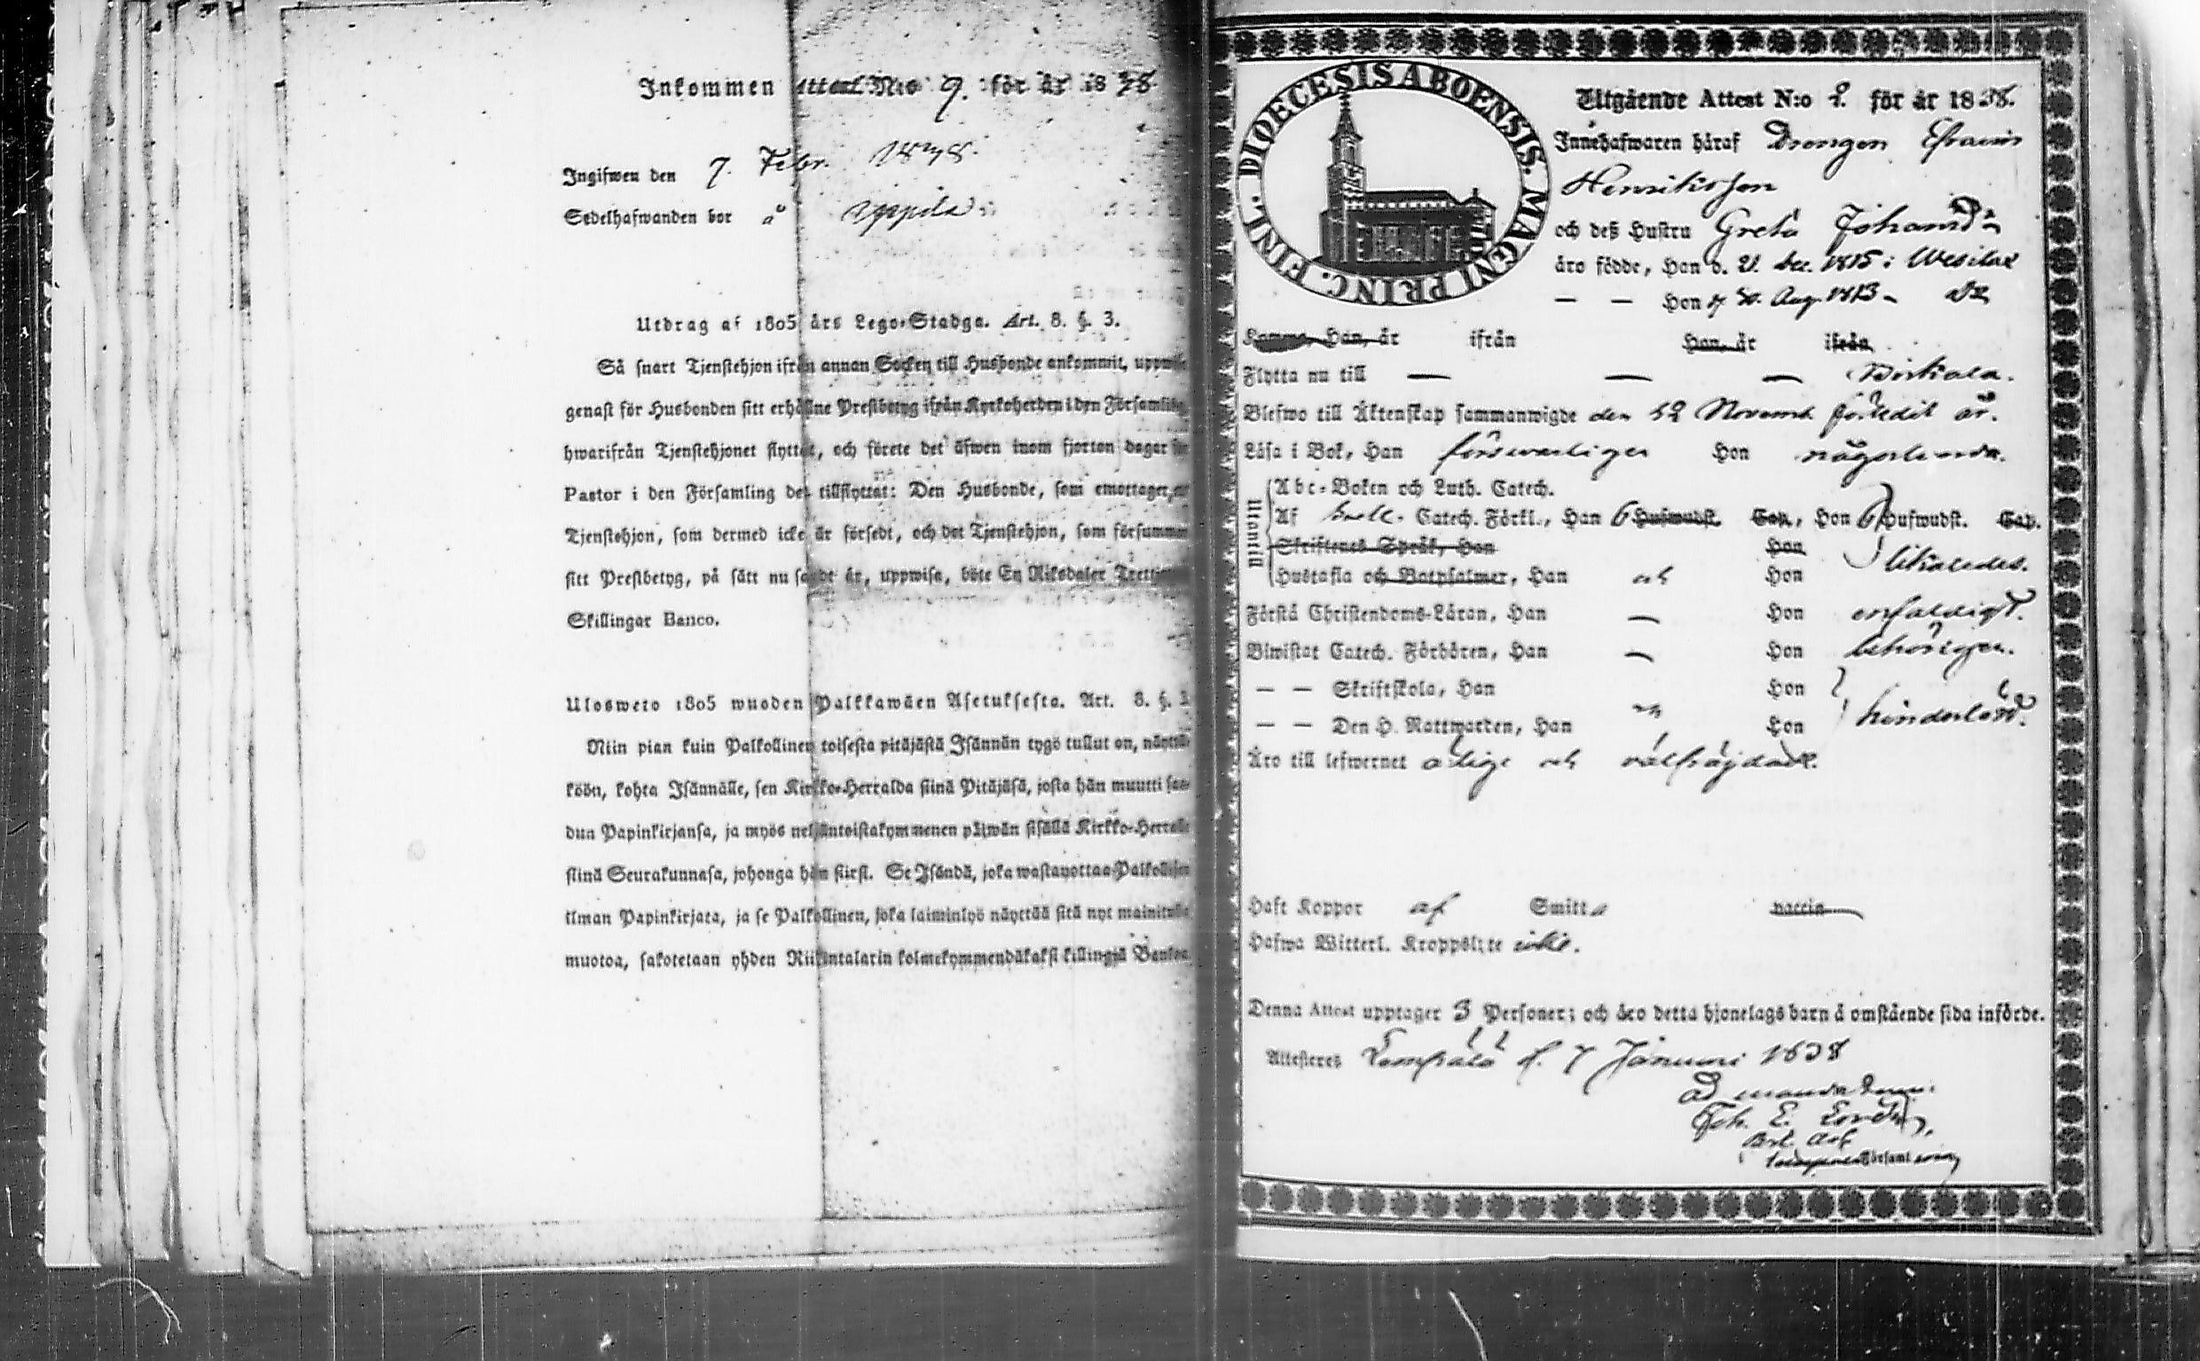 Inkommen Attest N:o 9. för år 1838
Ingifwen den 7. Febr. 1838.
Sedelhafwanden bor å
Utdrag af 1805 års Lego-Stadga. Art. 8. §. 3.
Så snart Tjenstehjon ifrån annan Socken till Husbonde ankommit, uppwise
genast för Husbonden sitt erhållne Prestbetyg ifrån Kyrkoherden i den Församling
hwarifrån Tjenstehjonet flyttat, och förete det äfwen inom fjorton dagar för
Pastor i den Församling det tillflyttat: Den Husbonde, som emottager ett
Tjenstehjon, som dermed icke är försedt, och det Tjenstehjon, som försummar
sitt Prestbetyg, på sätt nu sagdt är, uppwisa, böte En Riksdaler Trettiotwå
Skillingar Banco.
Ulosweto 1805 wuoden Palkkawäen Asetuksesta. Art. 8. §. 3.
Niin pian kuin Palkollinen toisesta pitäjästä Isännän tygö tullut on, näyttä-
köön, kohta Isännälle, sen Kirkko-Herralda siinä Pitäjäsä, josta hän muutti saa-
dun Papinkirjansa, ja myös neljäntoistakymmenen päiwän sisällä Kirkko-Herralle
siinä Seurakunnasa, johonga hän siirsi. Se Isändä, joka wastaanottaa Palkollisen
ilman Papinkirjata, ja se Palkollinen, joka laiminlyö näyttää sitä nyt mainitulla
muotoa, sakotetaan yhden Riikintalarin kolmekymmendäkaksi killingiä Bankoa.
DIOECESIS ABOENSIS. MAGNI PRINC. FINL.
Utgående Attest N:o 2. för år 1838.
Innehafwaren häraf Drengen Efraim
Henriksson
och deß Hustru Greta Johansd:r
äro födde, Han d. 21. Dec. 1815 i Wesilax
— — Hon d. 30. Aug. 1813 –
Komne, Han, år ifrån Hon, år ifrån
Flytta nu till — — — Birkala.
Blefwo till Äktenskap sammanwigde den 12 Novemb. förledit år.
Läsa i Bok, Han försvarligen Hon någorlunda.
Utantill
Abc-Boken och Luth. Catech.
Af Catech. Förkl., Han 6 Hufwudst. Cap., Hon 6 Hufwudst. Cap.
Skriftenes Språk, Han Hon
Hustafla och Botpsalmer, Han och Hon likaledes.
Förstå Christendoms-Läran, Han — Hon enfaldigt.
Biwistat Catech. Förhören, Han — Hon behörigen.
— — Skriftskola, Han Hon
— — Den H. Nattwarden, Han och Hon hinderlöst.
Äro till lefwernet ärlige och välfräjdade.
Haft Koppor af Smitta vaccin
Hafwa Witterl. Kroppslyte icke.
Denna Attest upptager 3 Personer; och äro detta hjonelags barn å omstående sida införde.
Attesteres Lempälä d. 7 Januari 1838
Ad mandatum:
Joh. E.